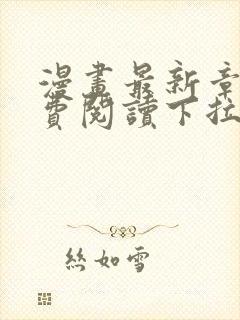 漫畫最新章
費閱讀下拉
絲如雪